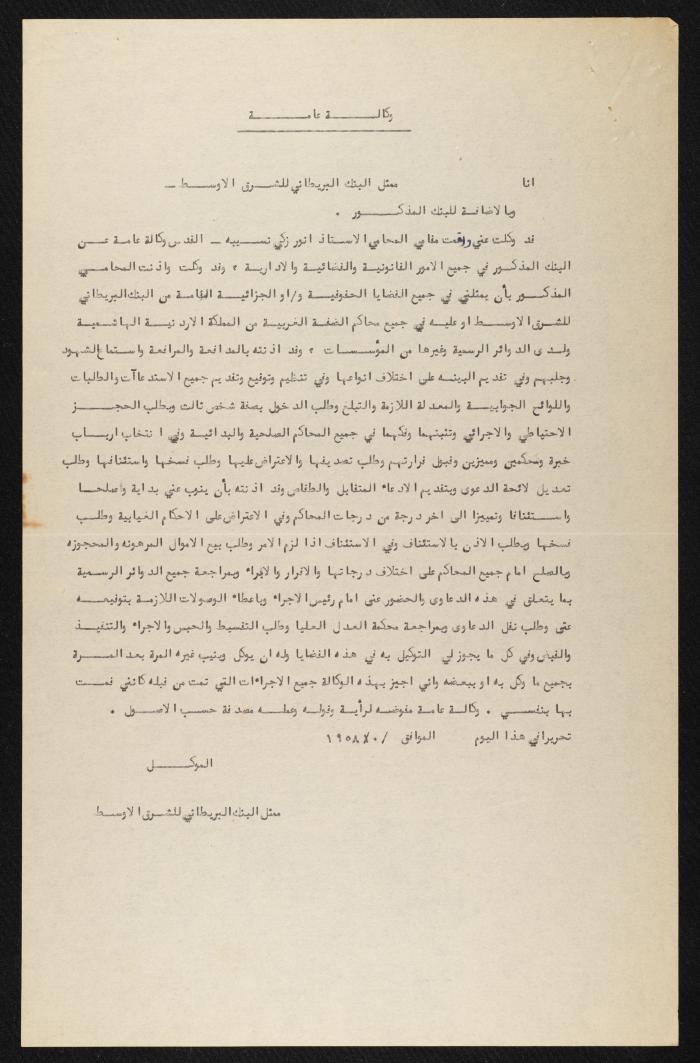 وكالة عامة
انا ممثل البنك البريطاني للشرق الاوسط ـ
وبالاضافة للبنك المذكور .
قد وكلت عني واقمت مقامي المحامي الاستاذ انور زكي نسيبه ـ القدس وكالة عامة عن
البنك المذكور في جميع الامور القانونية والقضائية والادارية ؟ وقد وكلت واذنت المحامي
المذكور بأن يمثلني في جميع القضايا الحقوقية و/او الجزائية المقامة من البنك البريطاني
للشرق الاوسط او عليه في جميع محاكم الضفة الغربية من المملكة الاردنية الهاشمية
ولدى الدوائر الرسمية وغيرها من المؤسسات ؟ وقد اذنته بالمدافعة والمرافعة واستماع الشهود
وجلبهم وفي تقديم البينه على اختلاف انواعها وفي تنظيم وتوقيع وتقديم جميع الاستدعاآت والطلبات
واللوائح الجوابية والمعدلة اللازمة والتبلغ وطلب الدخول بصفة شخص ثالث وبطلب الحجز
الاحتياطي والاجرائي وتثبتهما وفكهما في جميع المحاكم الصلحية والبدائية وفي انتخاب ارباب
خبرة ومحكمين ومميزين وقبول قرارتهم وطلب تصديقها والاعتراض عليها وطلب فسخها واستئنافها وطلب
تعديل لائحة الدعوى وبتقديم الادعاء المتقابل والطقاص وقد اذنته بأن ينوب عني بداية واصلحا
واستئنافا وتمييزا الى اخر درجة من درجات المحاكم وفي الاعتراض على الاحكام الغيابية وطلب
فسخها وبطلب الاذن بالاستئناف وفي الاستئناف اذا لزم الامر وطلب بيع الاموال المرهونه والمحجوزه
وبالصلح امام جميع المحاكم على اختلاف درجاتها والاقرار والابراء وبمراجعة جميع الدوائر الرسمية
بما يتعلق في هذه الدعاوى والحضور عنى امام رئيس الاجراء وباعطاء الوصولات اللازمة بتوقيعه
عنى وطلب نقل الدعاوى وبمراجعة محكمة العدل العليا وطلب التقسيط والحبس والاجراء والتنفيذ
والقبض وفي كل ما يجوز لي التوكيل به في هذه القضايا وله ان يوكل وينيب غيره المرة بعد المرة
بجميع ما وكل به او ببعضه واني اجيز بهذه الوكالة جميع الاجراءات التي تمت من قبله كانني قمت
بها بنفسي . وكالة عامة مفوضه لرأية وقوله وعمله مصدقة حسب الاصول .
تحريرا في هذا اليوم الموافق / ١٩٥٨
الموكل
ممثل البنك البريطاني للشرق الاوسط